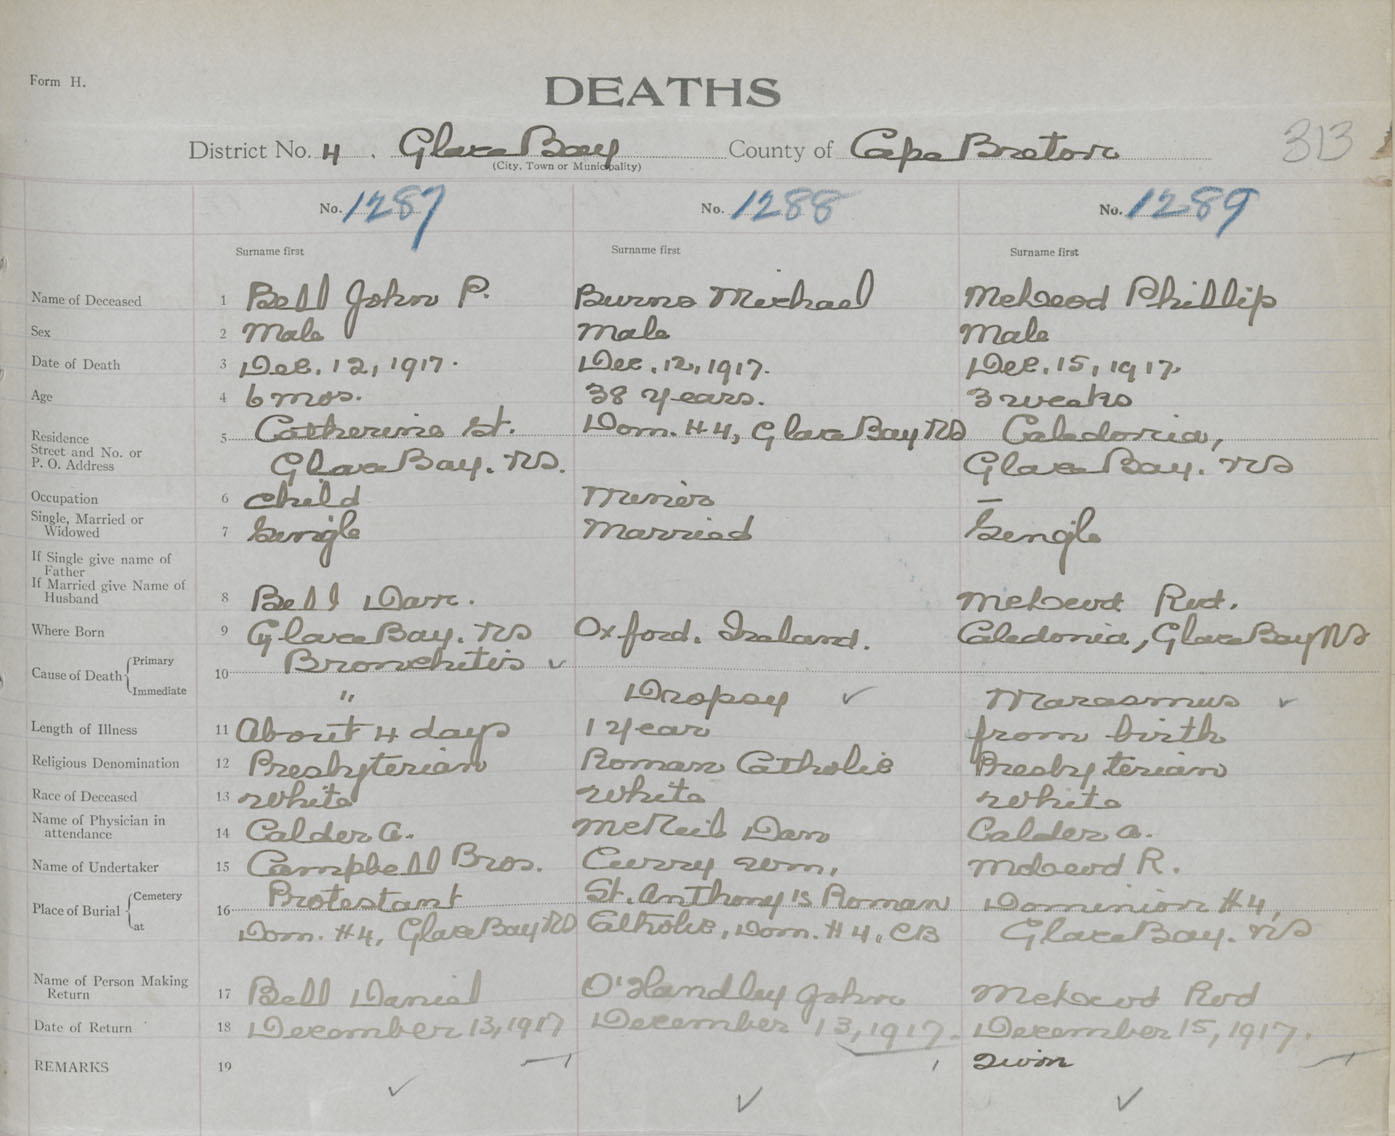 Form H.
DEATHS
313
District No. 4. Glace Bay County of Cape Breton
(City, Town or Municipality)
No. 1287 No. 1288 No. 1289
Surname first Surname first Surname first
Name of Deceased 1 Bell John P. Burns Michael McLeod Phillip
Sex 2 Male Male Male
Date of Death 3 Dec. 12, 1917. Dec. 12, 1917. Dec. 15, 1917.
Age 4 6 mos. 38 years. 3 weeks
Residence Street and No. or P. O. Address 5 Catherine St. Dom. #4, Glace Bay NS Caledonia,
Glace Bay. NS. Glace Bay. NS
Occupation 6 child Miner —
Single, Married or Widowed 7 Single Married Single
If Single give name of Father
If Married give Name of Husband 8 Bell Dan. McLeod Rod.
Where Born 9 Glace Bay. NS Oxford. Ireland. Caledonia, Glace Bay NS
Cause of Death { Primary 10 Bronchitis ✓
Immediate " Dropsy ✓ Marasmus ✓
Length of Illness 11 About 4 days 1 year from birth
Religious Denomination 12 Presbyterian Roman Catholic Presbyterian
Race of Deceased 13 White White White
Name of Physician in attendance 14 Calder A. McNeil Dan Calder A.
Name of Undertaker 15 Campbell Bros. Curry Wm, McLeod R.
Place of Burial { Cemetery 16 Protestant St. Anthony's Roman Dominion #4,
at Dom. #4, Glace Bay NS Catholic, Dom. #4, CB Glace Bay. NS
Name of Person Making Return 17 Bell Danial O'Handley John McLeod Rod
Date of Return 18 December 13, 1917 December 13, 1917. December 15, 1917.
REMARKS 19 Twin
✓ ✓ ✓